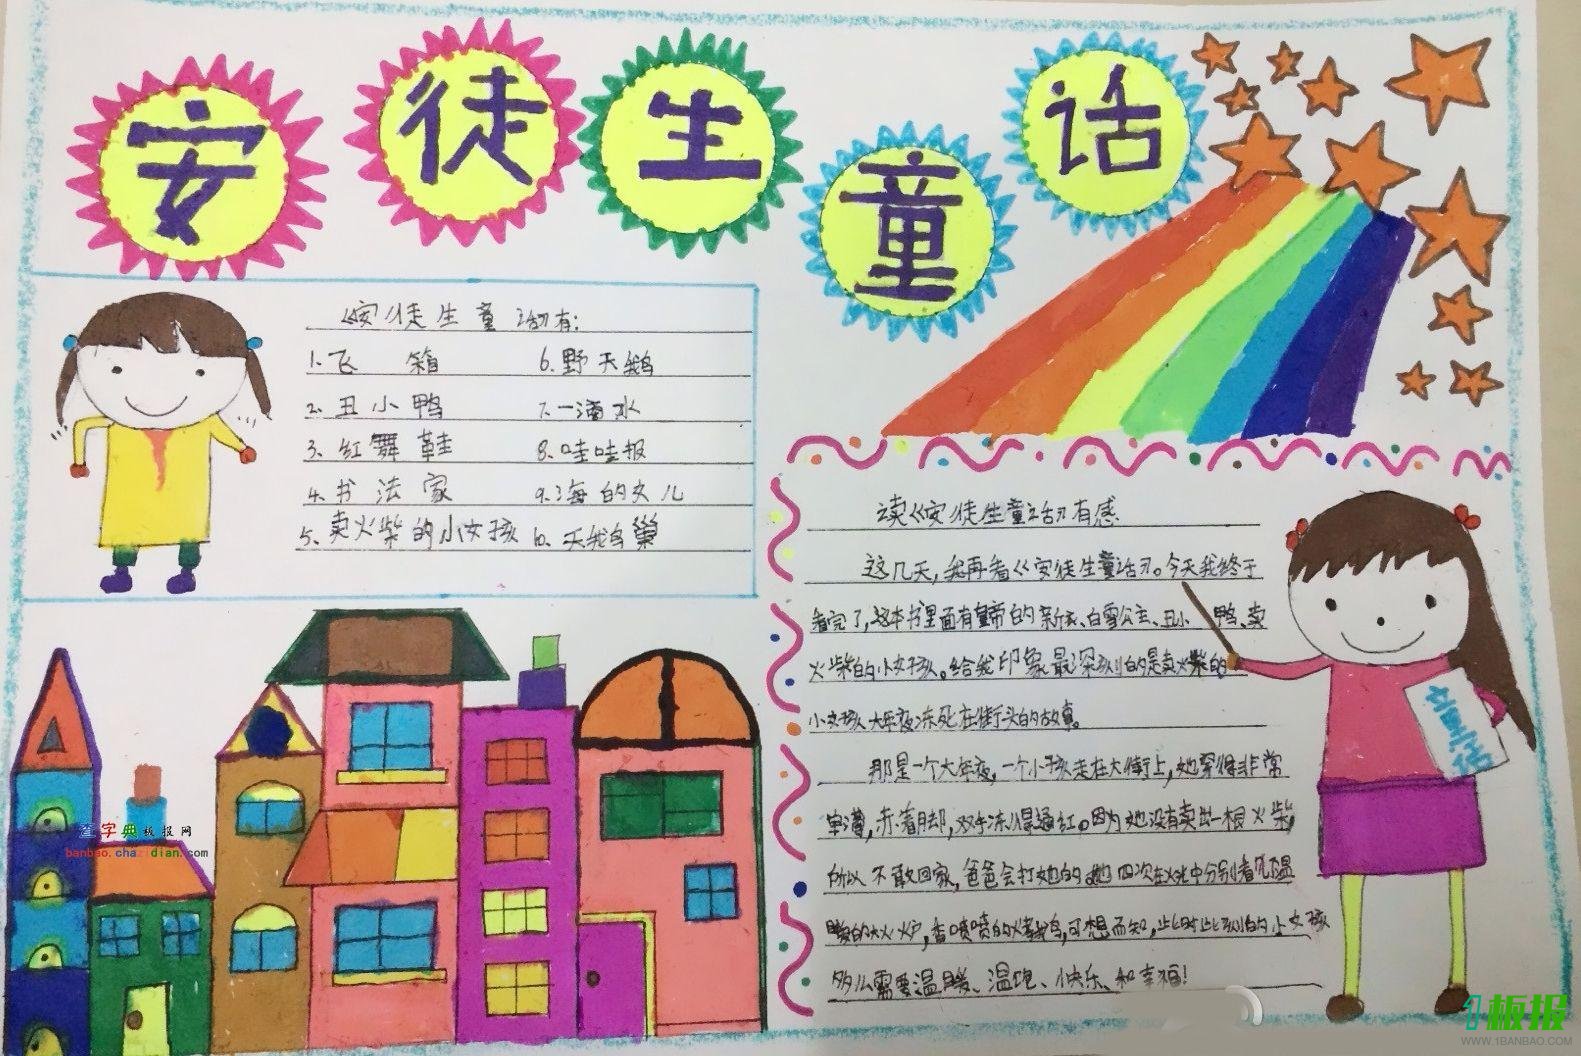 安徒生童话
《安徒生童话》有:
1.飞 箱 6.野天鹅
2.丑小鸭 7.一滴水
3.红舞鞋 8.哇哇报
4.书法家 9.海的女儿
5.卖火柴的小女孩 10.天鹅巢
读《安徒生童话》有感
这几天,我再看《安徒生童话》。今天我终于
看完了,这本书里面有皇帝的新衣、白雪公主、丑小 鸭、卖
火柴的小女孩。给我印象最深刻的是卖火柴的
小女孩大年夜冻死在街头的故事。
那是一个大年夜,一个小孩走在大街上,她穿得非常
单薄,赤着脚,双手冻得通红。因为她没有卖出一根火柴,
所以不敢回家,爸爸会打她的。她四次在火光中分别看见温
暖的火炉,香喷喷的烤鹅,可想而知,此时此刻的小女孩
多么需要温暖、温饱、快乐和幸福!
童话
查字典板报网
banbao.chazidian.com
1板报
WWW.1BANBAO.COM